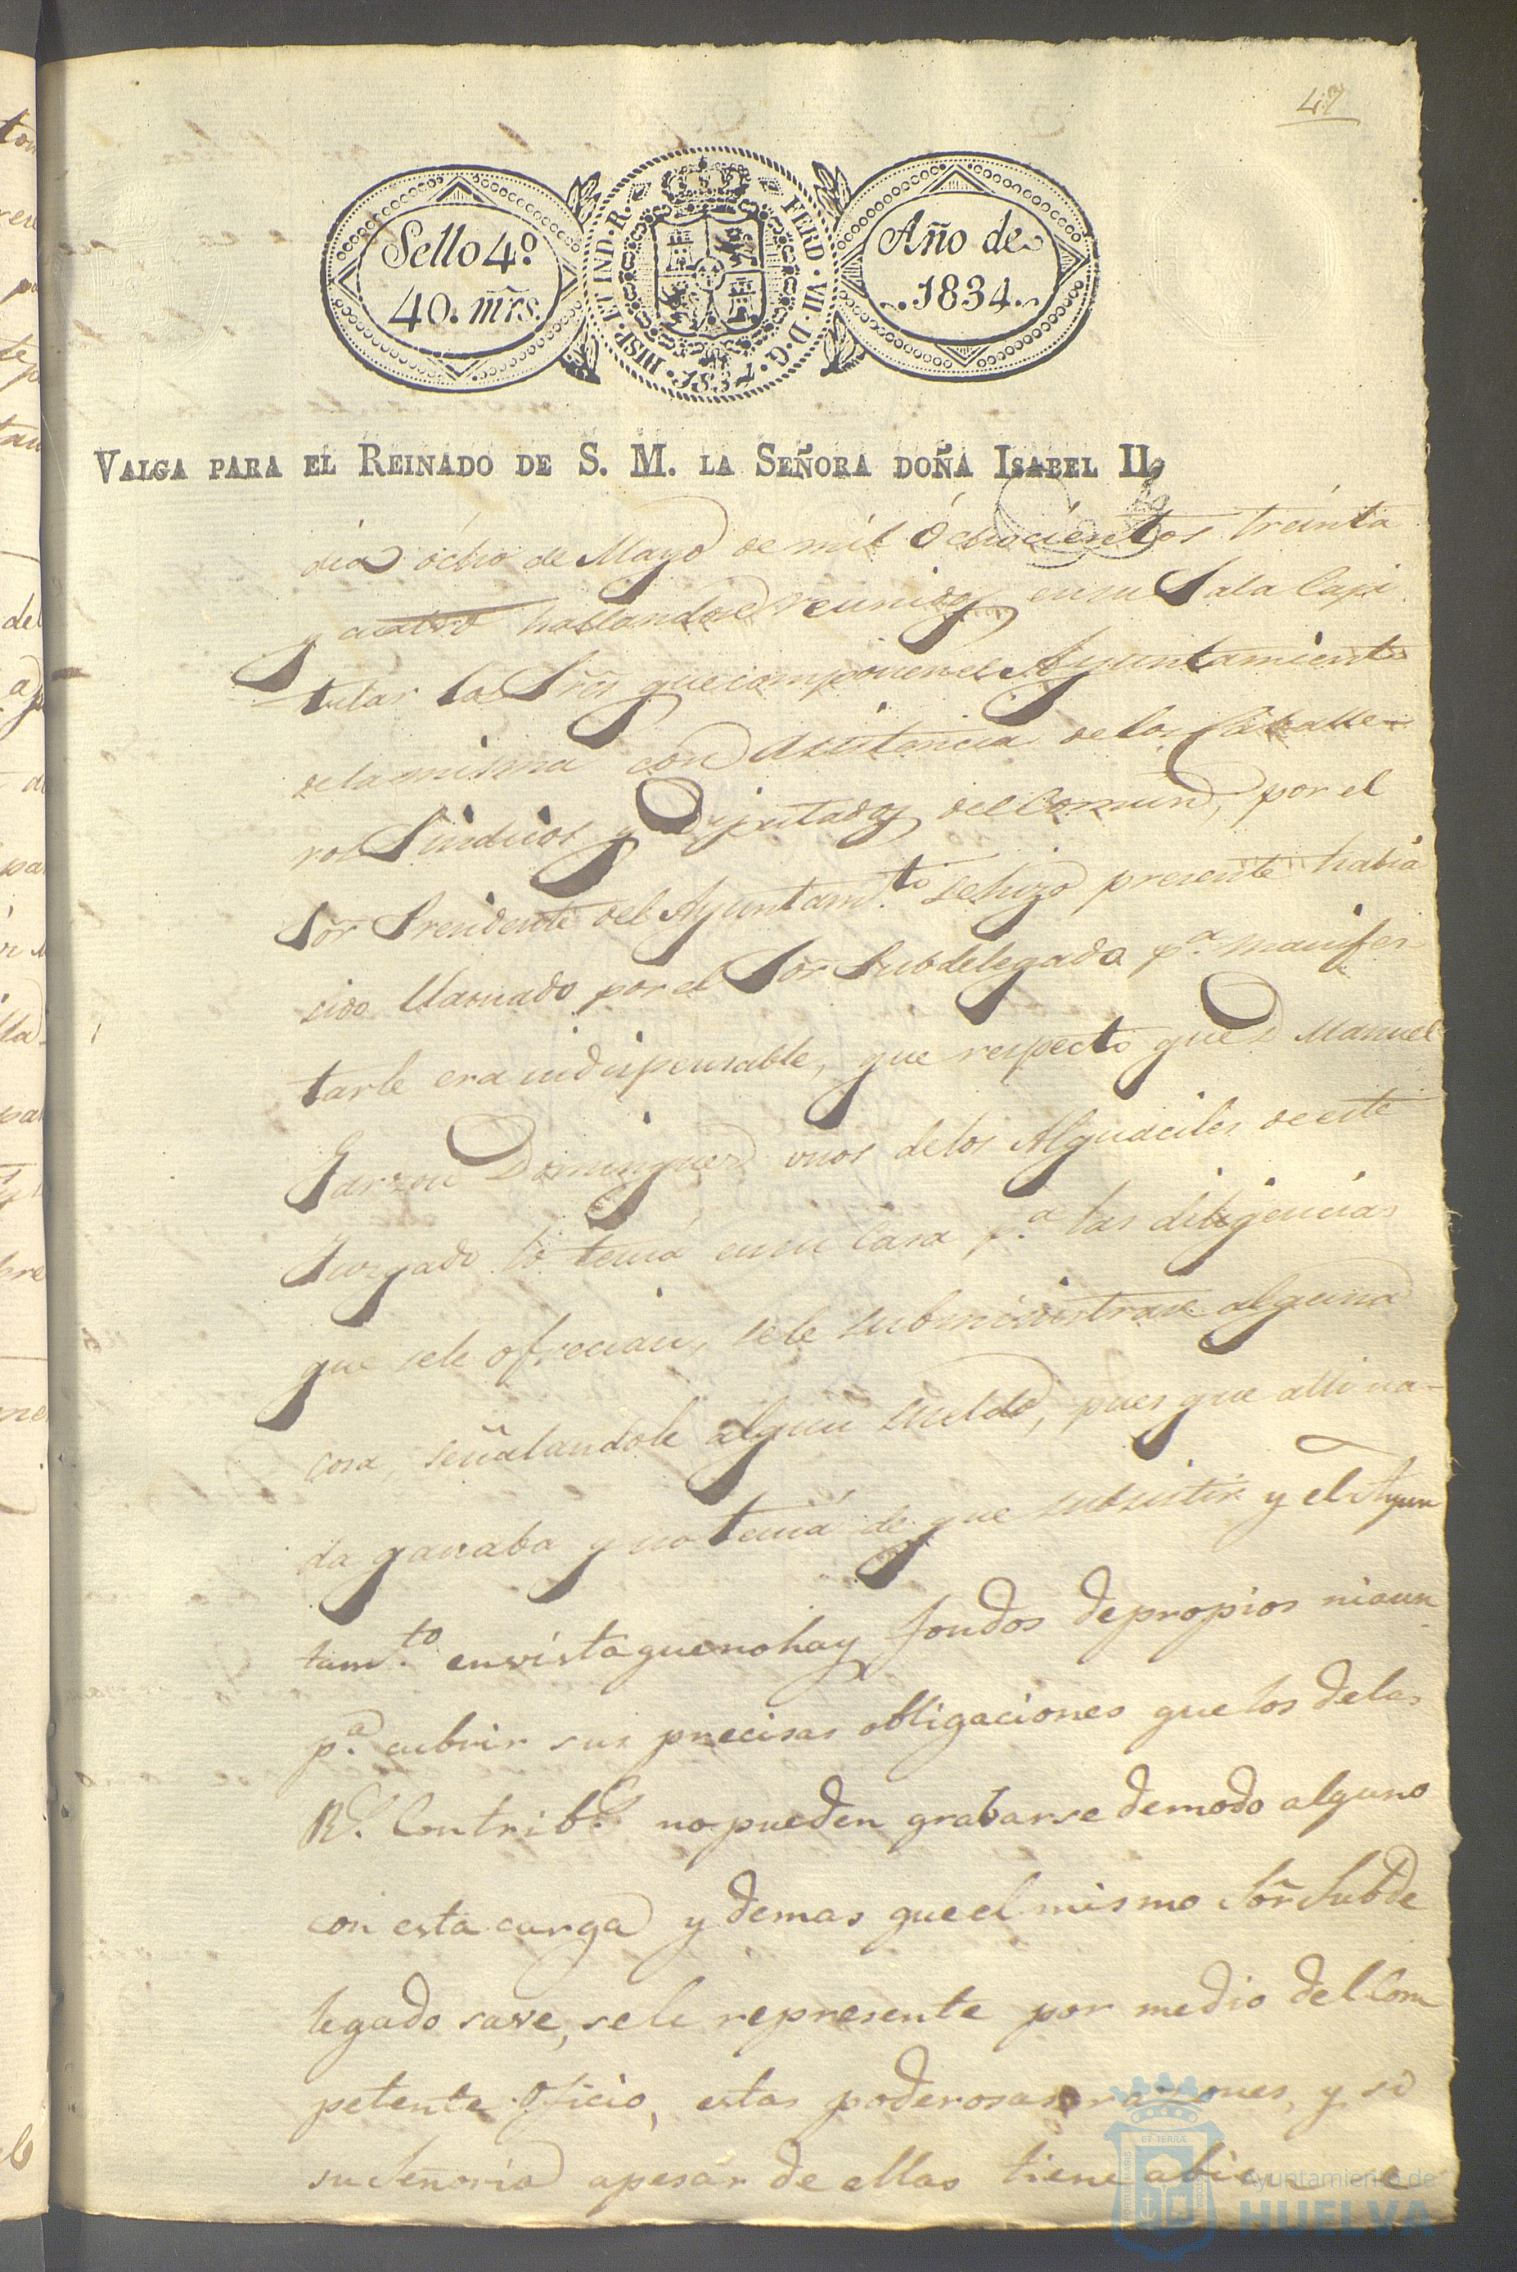 43
Sello 4º
40. mrs.
HISP. ET IND. R. FERD. VII. D. G. 1834.
Año de
1834.
VALGA PARA EL REINADO DE S. M. LA SEÑORA DOÑA ISABEL II,
dia ócho de Mayo de mil óchocientos treinta
y cuatro hallandose reunidos en su Sala Capi
tular los Sres que componen el Ayuntamiento
de la misma con Asistencia de los Caballe-
ros Sindicos y Diputados del Comun, por el
Sor Presidente del Ayuntam.to se hizo presente había
sido llamado por el Sor Subdelegado p.a manifes
tarle era indispensable, que respecto que D Manuel
Garzon Dominguez unos de los Alguaciles de este
Juzgado lo tenia en su Casa p.a las diligencias
que se le ofrecian, se le subministrase alguna
cosa, señalandole algun sueldo, pues que alli na-
da ganaba y no tenia de que subsistir y el Ayun
tam.to en vista que no hay fondos de propios ni aun
p.a cubrir sus precisas obligaciones que los de las
R.s Contrib.s no pueden grabarse de modo alguno
con esta carga y demas que el mismo Sor Subde
legado save, se le represente por medio del Com
petente Oficio, estas poderosas razones, y si
su Señoria apesar de ellas tiene a bien
Ayuntamiento de
HUELVA